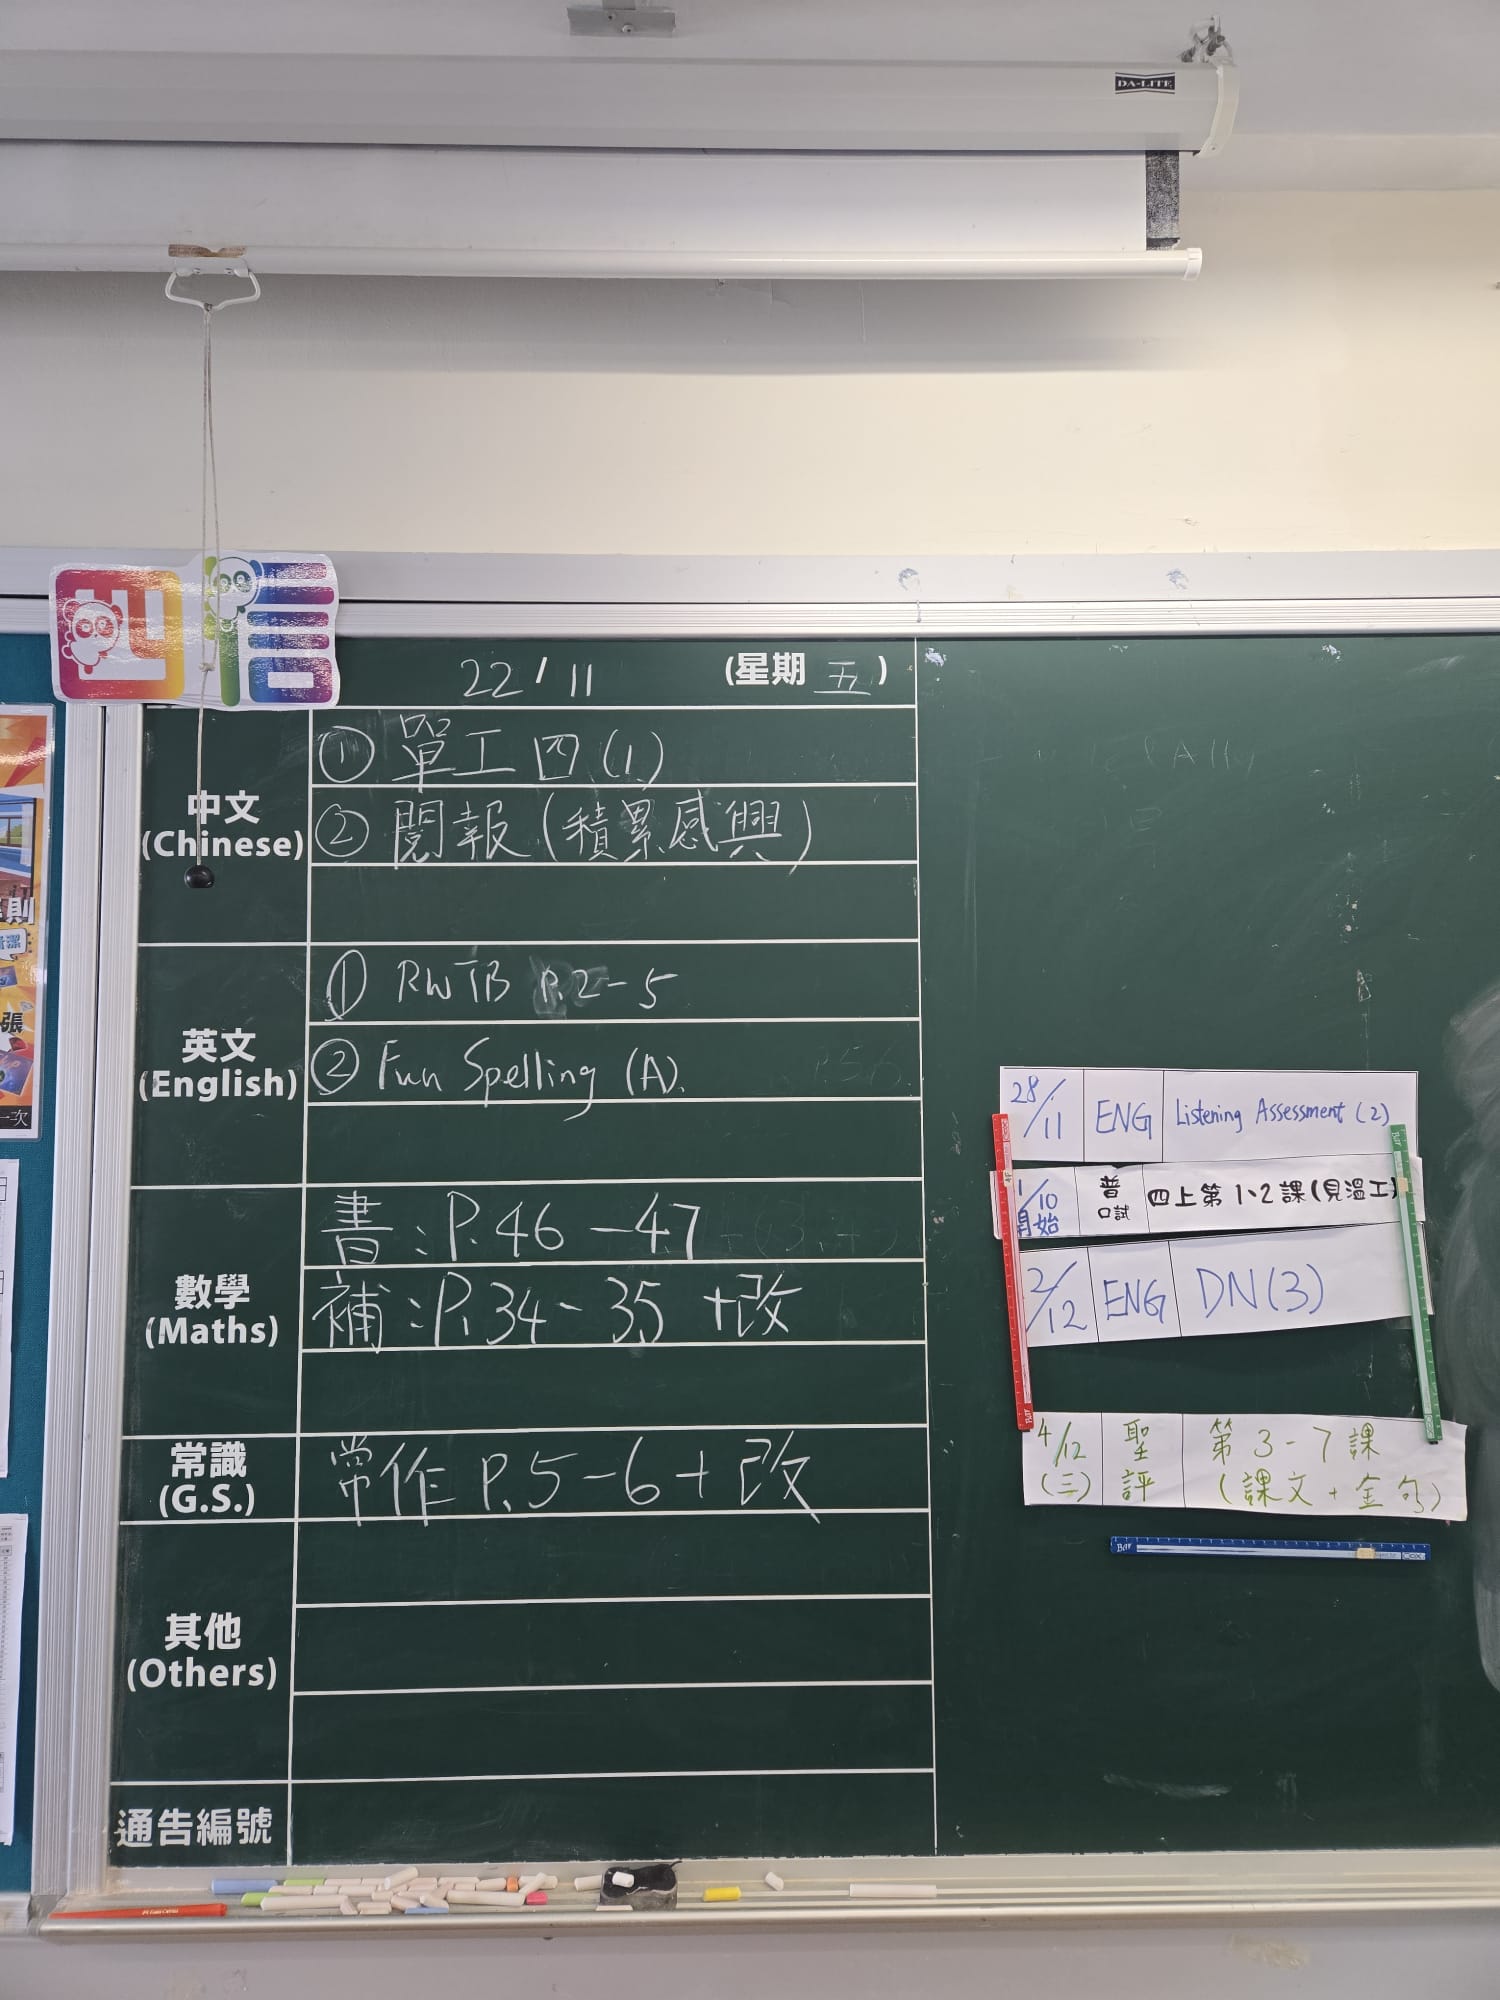 DA-LITE
四信
22/11 (星期五)
中文
(Chinese)
① 單工四(1)
② 閱報(積累感興)
英文
(English)
① RWTB P.2-5
② Fun Spelling (A).
數學
(Maths)
書:P.46-47
補:P.34-35 +改
常識
(G.S.)
常作 P.5-6+改
其他
(Others)
通告編號
28/11 ENG Listening Assessment (2)
1/10 開始 普 口試 四上第1、2課(見溫工)
2/12 ENG DN(3)
4/12 (三) 聖評 第3-7課
(課文+金句)
則
張
一次